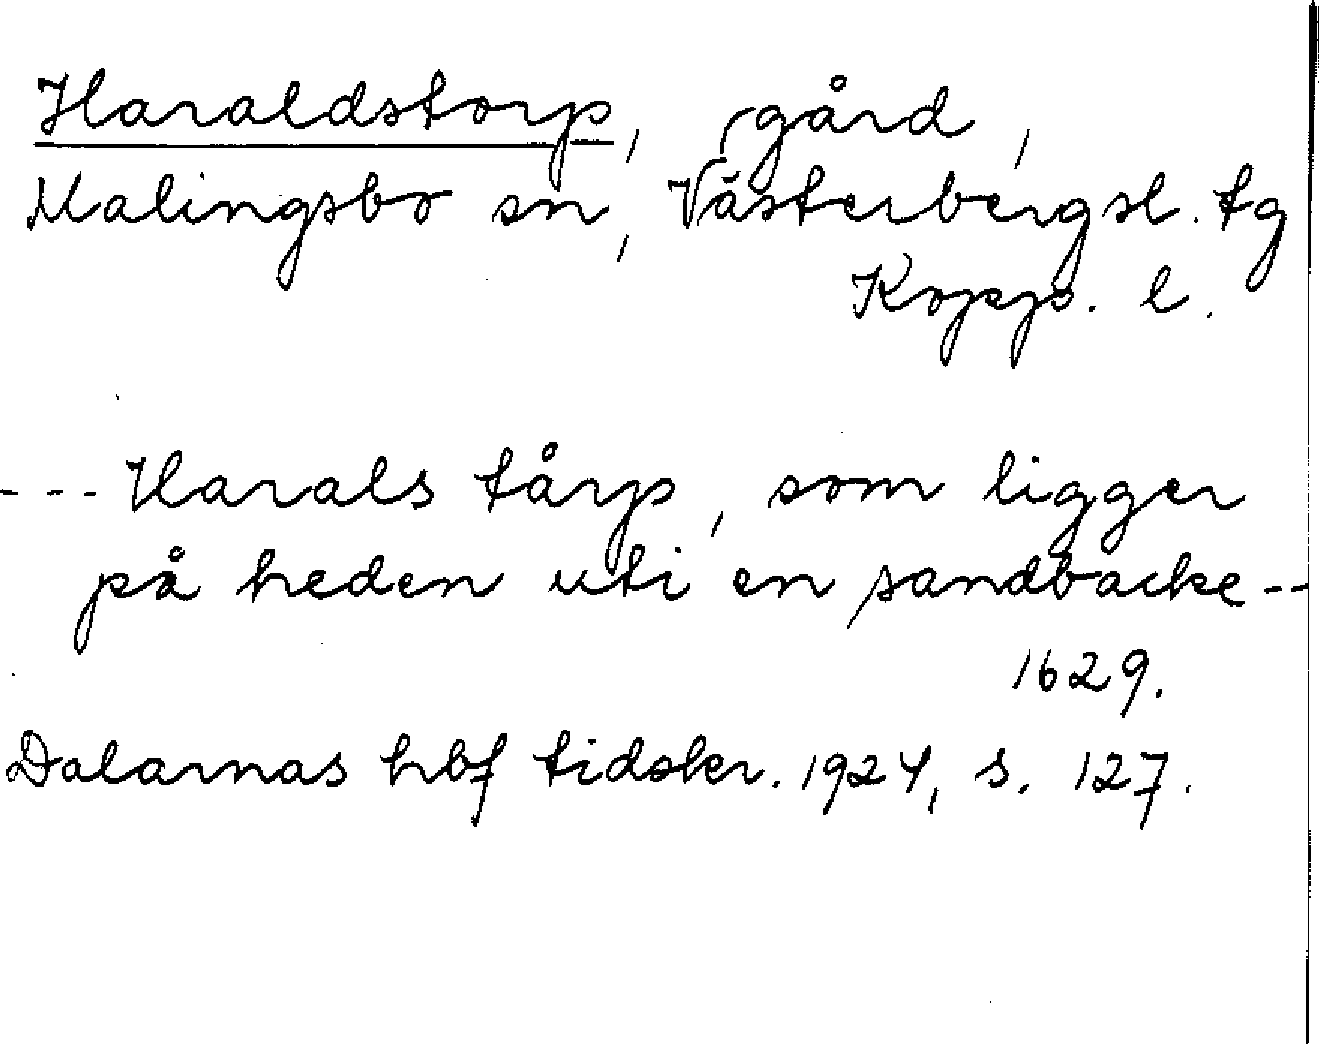 Haraldstorp, gård,
Malingsbo sn, Västerbergsl. tg
Kopp. l.
--- Harals tårp, som ligger
på heden uti en sandbacke --
1629.
Dalarnas hbf tidskr. 1924, s. 127.